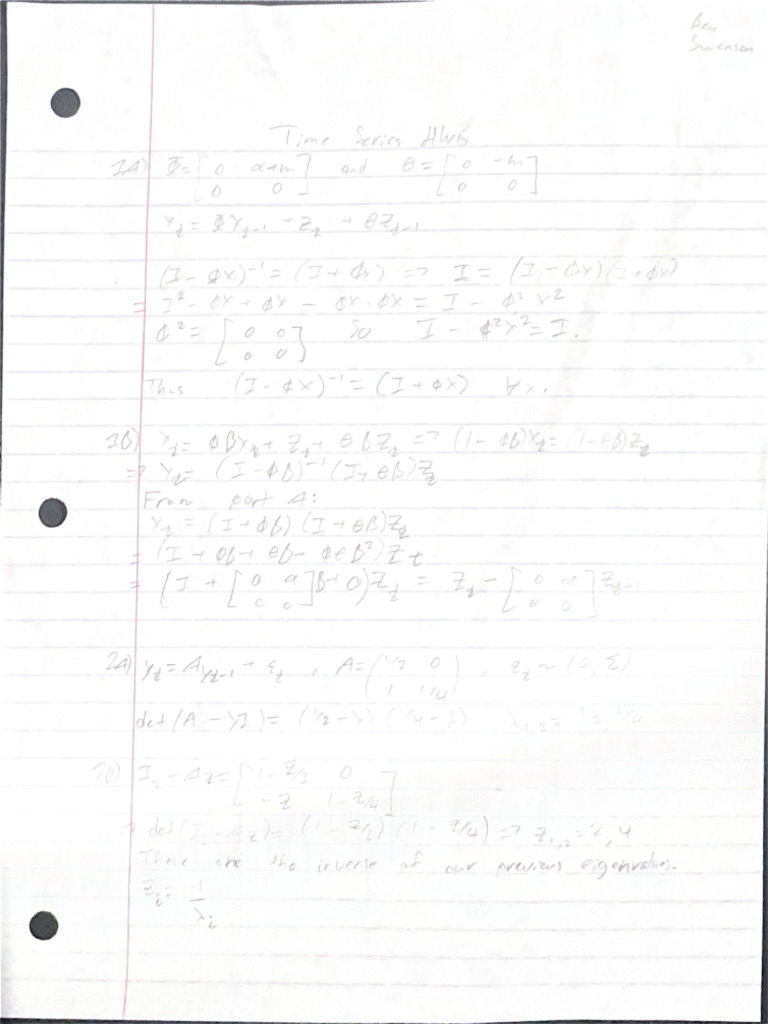 Ben
Swenson
Time Series HW6
1A) Φ = [ 0 α+m ; 0 0 ] and θ = [ 0 -m ; 0 0 ]
Y_t = ΦY_{t-1} + Z_t + θZ_{t-1}
(I - φx)^{-1} = (I + φx) => I = (I - φx)(I + φx)
= I² - φx + φx - φx·φx = I - φ²x²
φ² = [ 0 0 ; 0 0 ] So I - φ²x² = I.
Thus (I - φx)^{-1} = (I + φx) ∀x.
1B) Y_t = φBY_t + Z_t + θBZ_t => (1 - φB)Y_t = (1-θB)Z_t
=> Y_t = (I - φB)^{-1} (I + θB)Z_t
From part A:
Y_t = (I + φB) (I + θB)Z_t
= (I + φB + θB + φθB²)Z_t
= (I + [ 0 α ; 0 0 ]B + 0)Z_t = Z_t - [ 0 α ; 0 0 ]Z_{t-1}
2A) y_t = Ay_{t-1} + ε_t , A = ( 1/2 0 ; 1 1/4 ) , ε_t ~ (0, Σ)
det(A - λI) = (1/2 - λ)(1/4 - λ) λ_{1,2} = 1/2, 1/4
2B) I_2 - Az = [ 1 - z/2 0 ; -z 1 - z/4 ]
=> det(I_2 - Az) = (1 - z/2)(1 - z/4) => z_{1,2} = 2, 4
These are the inverse of our previous eigenvalues.
z_i = 1/λ_i